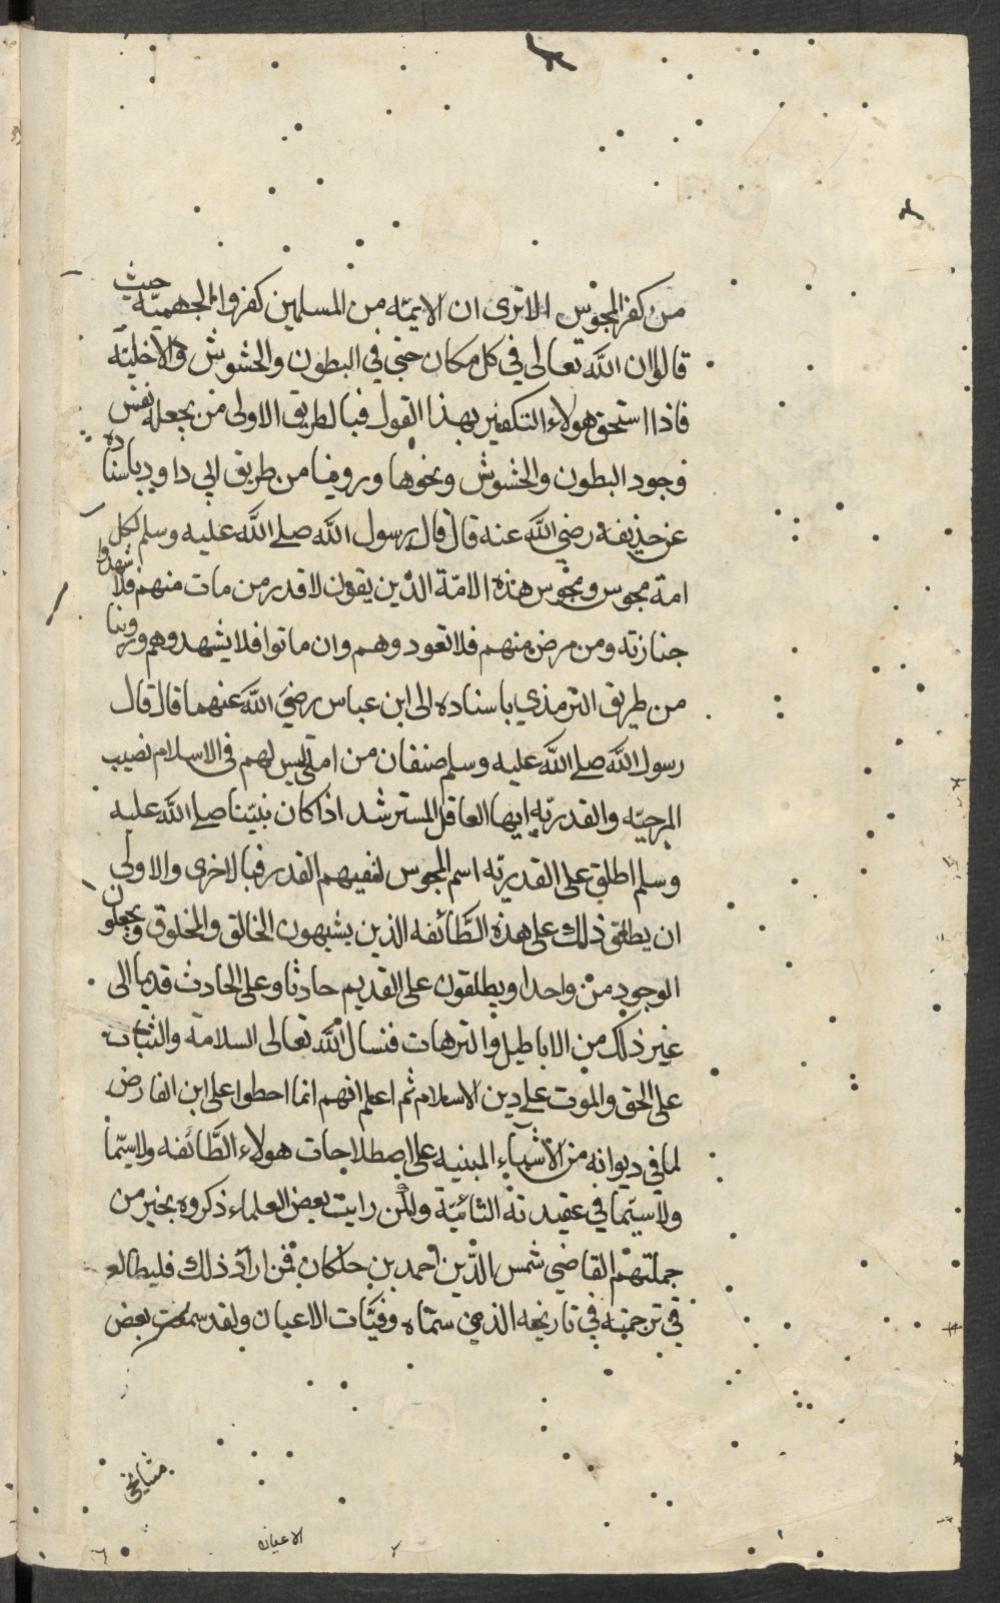 من كفر المجوس الا ترى ان الايمّه من المسلمين كفروا الجهميّه حيث
قالوا ان الله تعالى في كل مكان حتى في البطون والحشوش والاخليّه
فاذا استحق هولاء التكفير بهذا القول فبالطريق الاولى من يجعله نفس
وجود البطون والحشوش ونحوها وروينا من طريق ابي داود باسناده
عن حذيفه رضي الله عنه قال قال رسول الله صلے الله عليه وسلم لكل
امة مجوس ومجوس هذه الامّة الذين يقون لا قدر من مات منهم فلا تشهدوا
جنازته ومن مرض منهم فلا تعودوهم وان ماتوا فلا يشهدوهم وروينا
من طريق الترمذي باسناده الى ابن عباس رضي الله عنهما قال قال
رسول الله صلے الله عليه وسلم صنفان من امتي ليس لهم في الاسلام نصيب
المرجيّه والقدريّه ايها العاقل المسترشد اذا كان نبيّنا صلے الله عليه
وسلم اطلق على القدريّه اسم المجوس لنفيهم القدر فبالاخرى والاولى
ان يطلق ذلك على هذه الطّائفه الذين يشبهون الخالق والمخلوق ويجعلون
الوجود من واحدا ويطلقون على القديم حادثا وعلى الحادث قديما الى
غير ذلك من الاباطيل والترهات فنسال الله تعالى السلامة والثبات
على الحق والموت علے دين الاسلام ثم اعلم انهم انما احطوا على ابن الفارض
لما في ديوانه من الاشياء المبنيه على اصطلاحات هولاء الطّائفه ولا سيّما
ولا سيّما في عقيدته التائيّة ولكن رايت بعض العلماء ذكروه بخير من
جملتهم القاضي شمس الدّين احمد بن خلكان فمن اراد ذلك فليطالع
في ترجمته في تاريخه الذي سمّاه وفيّات الاعيان ولقد سمعت بعض
مشايخي
الاعيان